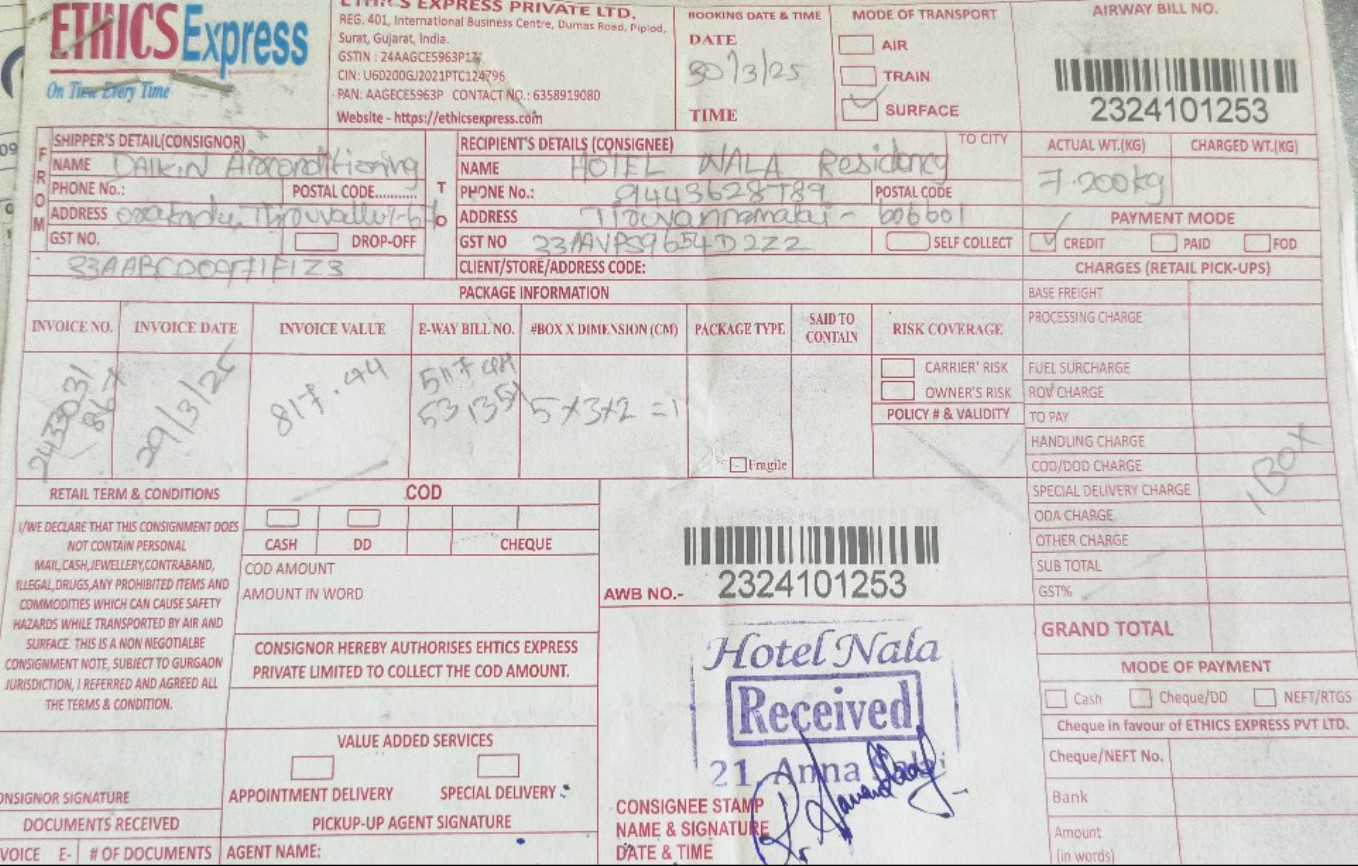 ETHICS Express
On Time Every Time
ETHICS EXPRESS PRIVATE LTD.
REG. 401, International Business Centre, Dumas Road, Piplod,
Surat, Gujarat, India.
GSTIN : 24AAGCE5963P1Z
CIN: U60200GJ2021PTC124796
PAN: AAGECES963P CONTACT NO.: 6358919080
Website - https://ethicsexpress.com
BOOKING DATE & TIME
DATE
30/3/25
TIME
MODE OF TRANSPORT
AIR
TRAIN
SURFACE
AIRWAY BILL NO.
2324101253
FROM
SHIPPER'S DETAIL(CONSIGNOR)
NAME DAIKIN Airconditioning
PHONE No.: POSTAL CODE...........
ADDRESS Tiruvallur-67
GST NO. DROP-OFF
TO
RECIPIENT'S DETAILS (CONSIGNEE) TO CITY
NAME HOTEL NALA Residency
PHONE No.: POSTAL CODE
ADDRESS Tiruvannamalai - 606601
GST NO 33AAVPS9654D2Z2 SELF COLLECT
CLIENT/STORE/ADDRESS CODE:
ACTUAL WT.(KG) CHARGED WT.(KG)
7.200kg
PAYMENT MODE
CREDIT PAID FOD
CHARGES (RETAIL PICK-UPS)
PACKAGE INFORMATION
INVOICE NO. INVOICE DATE INVOICE VALUE E-WAY BILL NO. #BOX X DIMENSION (CM) PACKAGE TYPE SAID TO CONTAIN RISK COVERAGE
29/3/25 817.44 5×3×2 =1
CARRIER' RISK
OWNER'S RISK
POLICY # & VALIDITY
Fragile
BASE FREIGHT
PROCESSING CHARGE
FUEL SURCHARGE
ROV CHARGE
TO PAY
HANDLING CHARGE
COD/DOD CHARGE
SPECIAL DELIVERY CHARGE
ODA CHARGE
OTHER CHARGE
SUB TOTAL
GST%
GRAND TOTAL
1 BOX
RETAIL TERM & CONDITIONS
I/WE DECLARE THAT THIS CONSIGNMENT DOES
NOT CONTAIN PERSONAL
MAIL,CASH,JEWELLERY,CONTRABAND,
ILLEGAL,DRUGS,ANY PROHIBITED ITEMS AND
COMMODITIES WHICH CAN CAUSE SAFETY
HAZARDS WHILE TRANSPORTED BY AIR AND
SURFACE. THIS IS A NON NEGOTIALBE
CONSIGNMENT NOTE, SUBJECT TO GURGAON
JURISDICTION, I REFERRED AND AGREED ALL
THE TERMS & CONDITION.
COD
CASH DD CHEQUE
COD AMOUNT
AMOUNT IN WORD
CONSIGNOR HEREBY AUTHORISES EHTICS EXPRESS
PRIVATE LIMITED TO COLLECT THE COD AMOUNT.
VALUE ADDED SERVICES
APPOINTMENT DELIVERY SPECIAL DELIVERY
PICKUP-UP AGENT SIGNATURE
AGENT NAME:
CONSIGNOR SIGNATURE
DOCUMENTS RECEIVED
# OF DOCUMENTS
AWB NO.- 2324101253
Hotel Nala
Received
21, Anna
CONSIGNEE STAMP
NAME & SIGNATURE
DATE & TIME
MODE OF PAYMENT
Cash Cheque/DD NEFT/RTGS
Cheque in favour of ETHICS EXPRESS PVT LTD.
Cheque/NEFT No.
Bank
Amount
(in words)